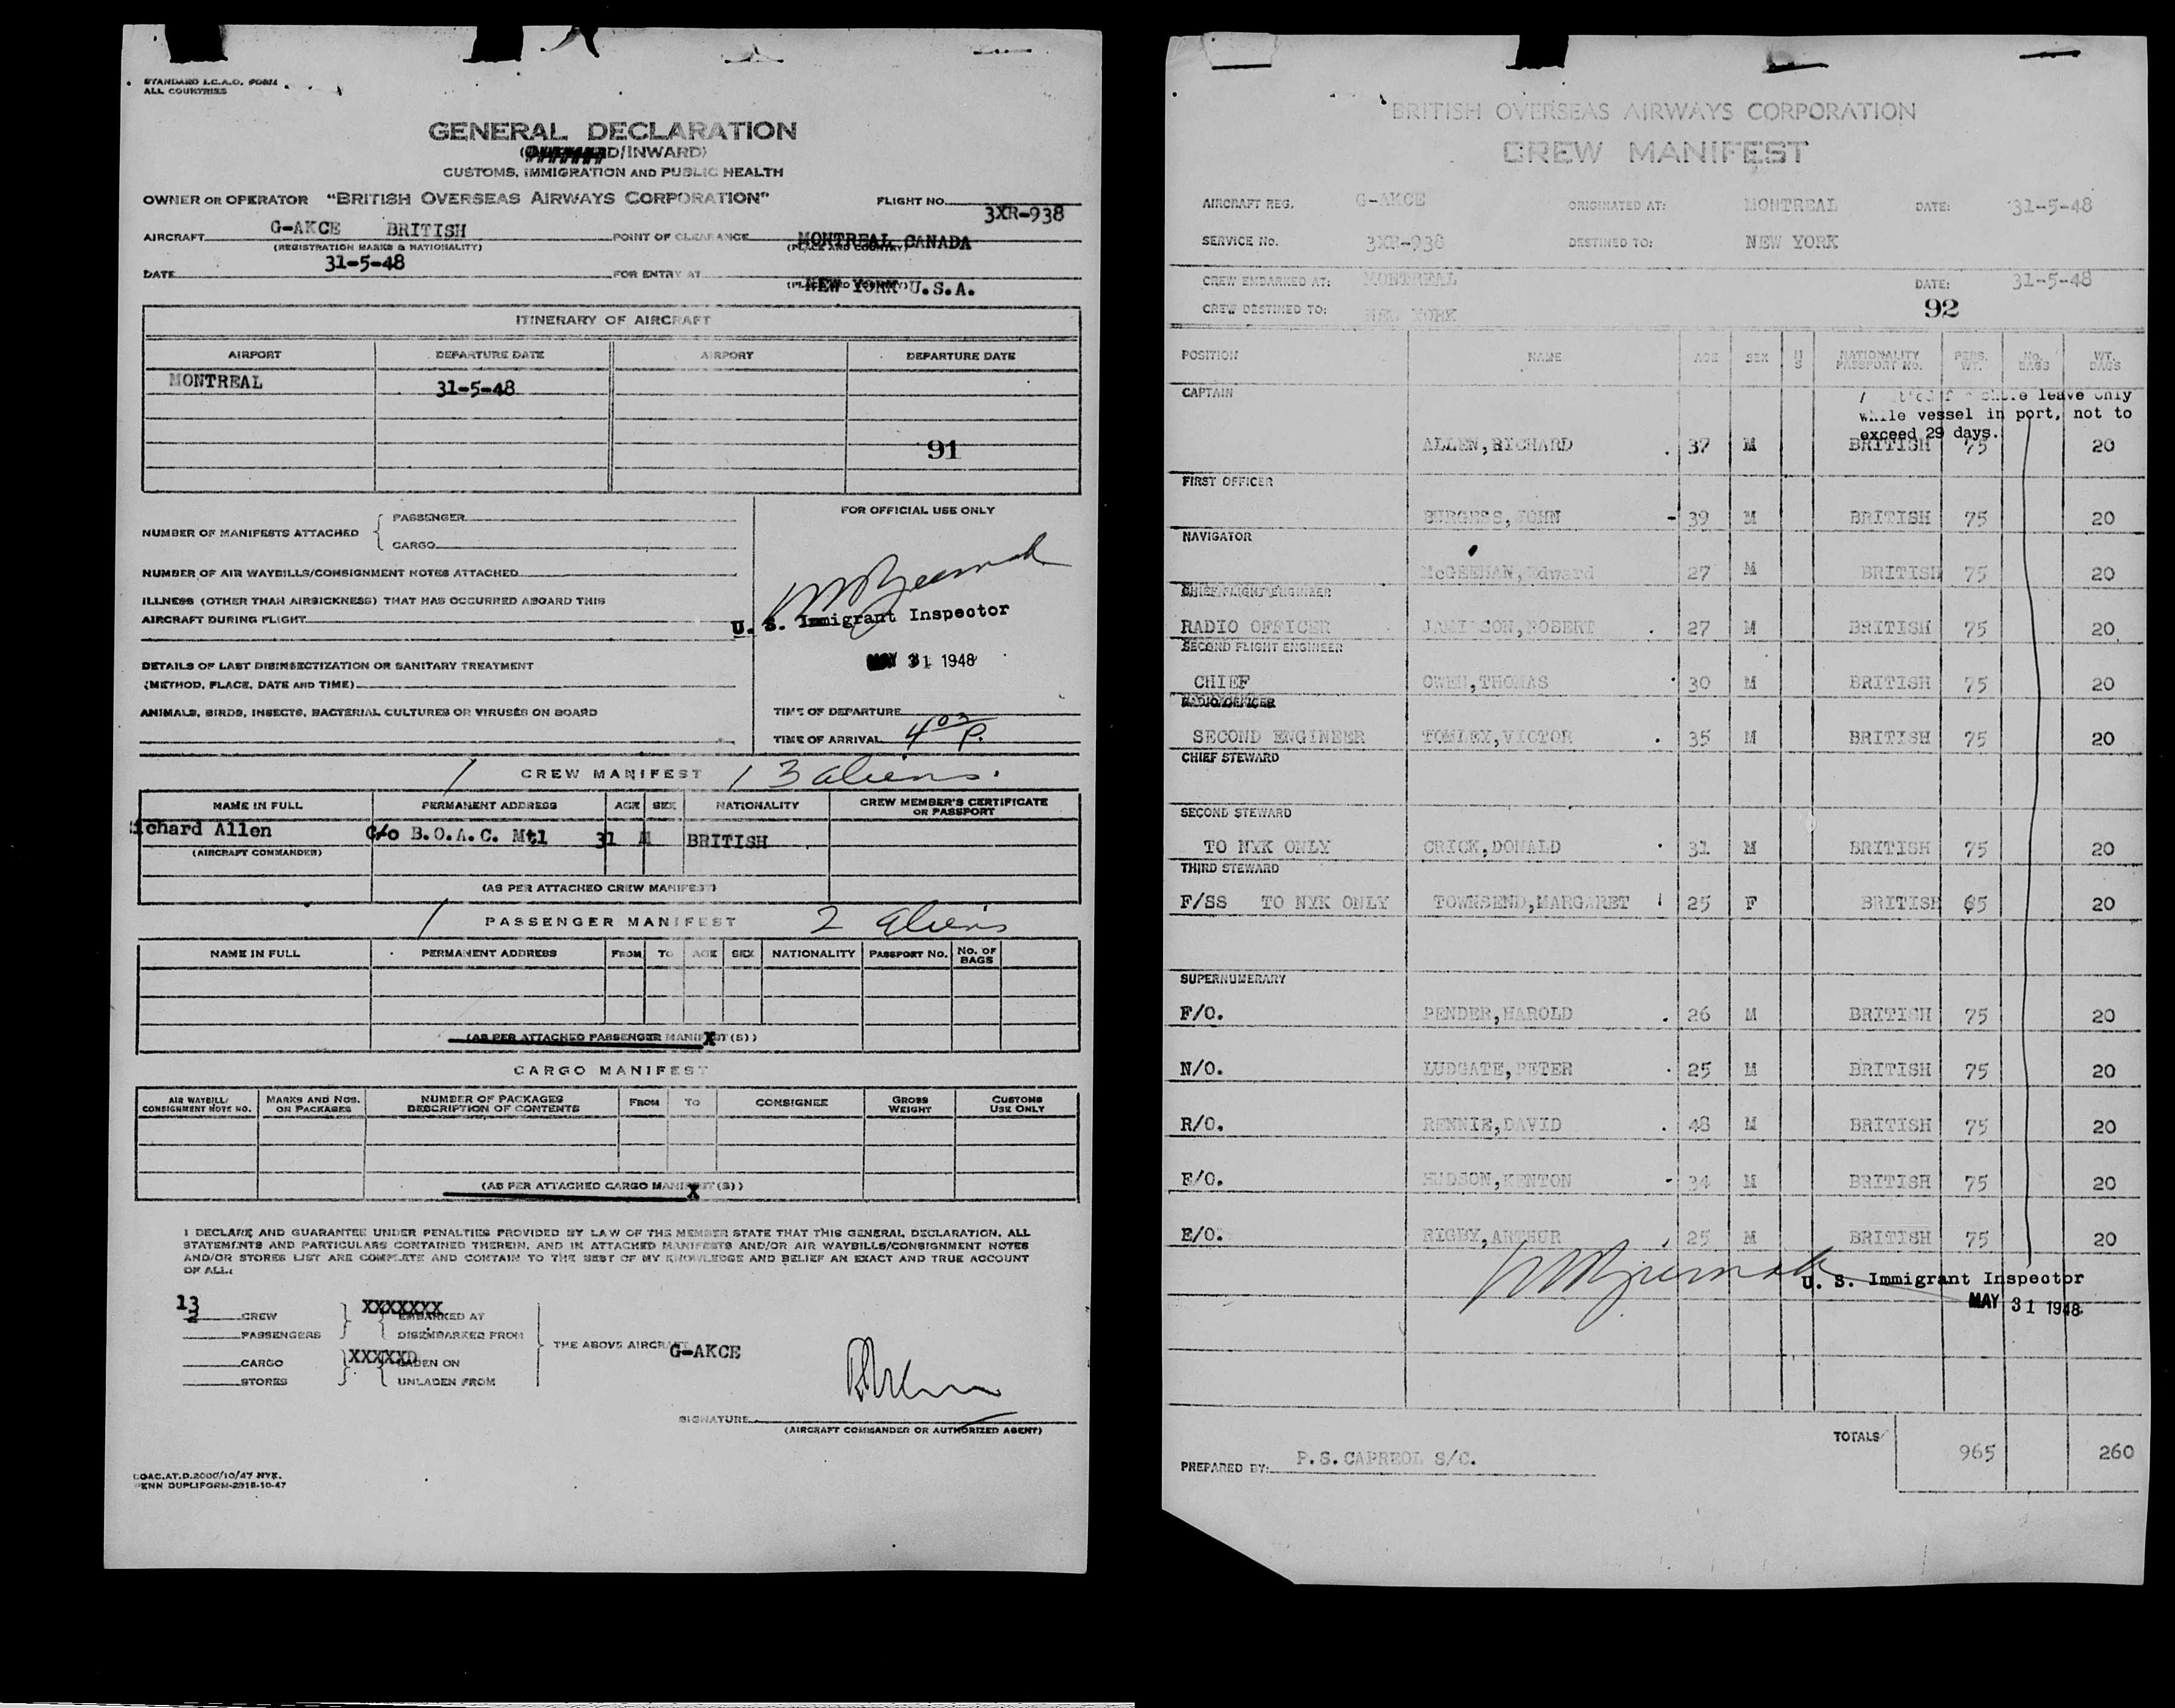 STANDARD I.C.A.O. FORM
ALL COUNTRIES
GENERAL DECLARATION
D/INWARD)
CUSTOMS, IMMIGRATION AND PUBLIC HEALTH
OWNER OR OPERATOR "BRITISH OVERSEAS AIRWAYS CORPORATION" FLIGHT NO. 3XR-938
AIRCRAFT G-AKCE BRITISH POINT OF CLEARANCE MONTREAL CANADA
(REGISTRATION MARKS & NATIONALITY) (PLACE AND COUNTRY)
DATE 31-5-48 FOR ENTRY AT NEW YORK U.S.A.
(PLACE AND COUNTRY)
ITINERARY OF AIRCRAFT
AIRPORT DEPARTURE DATE AIRPORT DEPARTURE DATE
MONTREAL 31-5-48
91
FOR OFFICIAL USE ONLY
NUMBER OF MANIFESTS ATTACHED { PASSENGER
CARGO
NUMBER OF AIR WAYBILLS/CONSIGNMENT NOTES ATTACHED
ILLNESS (OTHER THAN AIRSICKNESS) THAT HAS OCCURRED ABOARD THIS
AIRCRAFT DURING FLIGHT
U. S. Immigrant Inspector
MAY 31 1948
DETAILS OF LAST DISINSECTIZATION OR SANITARY TREATMENT
(METHOD, PLACE, DATE AND TIME)
ANIMALS, BIRDS, INSECTS, BACTERIAL CULTURES OR VIRUSES ON BOARD
TIME OF DEPARTURE
TIME OF ARRIVAL 4 03 P.
/ CREW MANIFEST 13 aliens.
NAME IN FULL PERMANENT ADDRESS AGE SEX NATIONALITY CREW MEMBER'S CERTIFICATE OR PASSPORT
ichard Allen C/o B.O.A.C. Mtl 31 M BRITISH
(AIRCRAFT COMMANDER)
(AS PER ATTACHED CREW MANIFEST)
/ PASSENGER MANIFEST 2 aliens
NAME IN FULL PERMANENT ADDRESS FROM TO AGE SEX NATIONALITY PASSPORT NO. NO. OF BAGS
(AS PER ATTACHED PASSENGER MANIFEST(S))
CARGO MANIFEST
AIR WAYBILL/ CONSIGNMENT NOTE NO. MARKS AND NOS. ON PACKAGES NUMBER OF PACKAGES DESCRIPTION OF CONTENTS FROM TO CONSIGNEE GROSS WEIGHT CUSTOMS USE ONLY
(AS PER ATTACHED CARGO MANIFEST(S))
I DECLARE AND GUARANTEE UNDER PENALTIES PROVIDED BY LAW OF THE MEMBER STATE THAT THIS GENERAL DECLARATION, ALL
STATEMENTS AND PARTICULARS CONTAINED THEREIN, AND IN ATTACHED MANIFESTS AND/OR AIR WAYBILLS/CONSIGNMENT NOTES
AND/OR STORES LIST ARE COMPLETE AND CONTAIN TO THE BEST OF MY KNOWLEDGE AND BELIEF AN EXACT AND TRUE ACCOUNT
OF ALL:
13 CREW XXXXXXX EMBARKED AT
2 PASSENGERS DISEMBARKED FROM
THE ABOVE AIRCRAFT G-AKCE
CARGO XXXXXD LADEN ON
STORES UNLADEN FROM
SIGNATURE
(AIRCRAFT COMMANDER OR AUTHORIZED AGENT)
BOAC.AT.D.2000/10/47 NYK.
PENN DUPLIFORM-2918-10-47
BRITISH OVERSEAS AIRWAYS CORPORATION
CREW MANIFEST
AIRCRAFT REG. G-AKCE ORIGINATED AT: MONTREAL DATE: 31-5-48
SERVICE No. 3XR-938 DESTINED TO: NEW YORK
CREW EMBARKED AT: MONTREAL DATE: 31-5-48
CREW DESTINED TO: NEW YORK 92
POSITION NAME AGE SEX NATIONALITY PASSPORT No. PERS. WT. No. BAGS WT. BAGS
CAPTAIN
shore leave only
while vessel in port, not to
exceed 29 days.
ALLEN,RICHARD 37 M BRITISH 75 20
FIRST OFFICER
BURGESS,JOHN 39 M BRITISH 75 20
NAVIGATOR
McGEEHAN,Edward 27 M BRITISH 75 20
CHIEF FLIGHT ENGINEER
RADIO OFFICER JAMIESON,ROBERT 27 M BRITISH 75 20
SECOND FLIGHT ENGINEER
CHIEF OWEN,THOMAS 30 M BRITISH 75 20
RADIO OFFICER
SECOND ENGINEER TOMLEY,VICTOR 35 M BRITISH 75 20
CHIEF STEWARD
SECOND STEWARD
TO NYK ONLY CRICK,DONALD 31 M BRITISH 75 20
THIRD STEWARD
F/SS TO NYK ONLY TOWNSEND,MARGARET 25 F BRITISH 65 20
SUPERNUMERARY
F/O. PENDER,HAROLD 26 M BRITISH 75 20
N/O. LUDGATE,PETER 25 M BRITISH 75 20
R/O. RENNIE,DAVID 48 M BRITISH 75 20
E/O. HUDSON,KENTON 34 M BRITISH 75 20
E/O. RIGBY,ARTHUR 25 M BRITISH 75 20
U. S. Immigrant Inspector
MAY 31 1948
TOTALS 965 260
PREPARED BY: P.S.CAPREOL S/C.